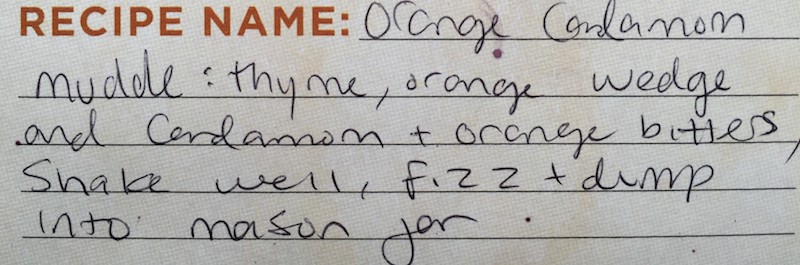 RECIPE NAME: Orange Cardamom
muddle: thyme, orange wedge
and Cardamom + orange bitters,
Shake well, fizz + dump
Into mason jar